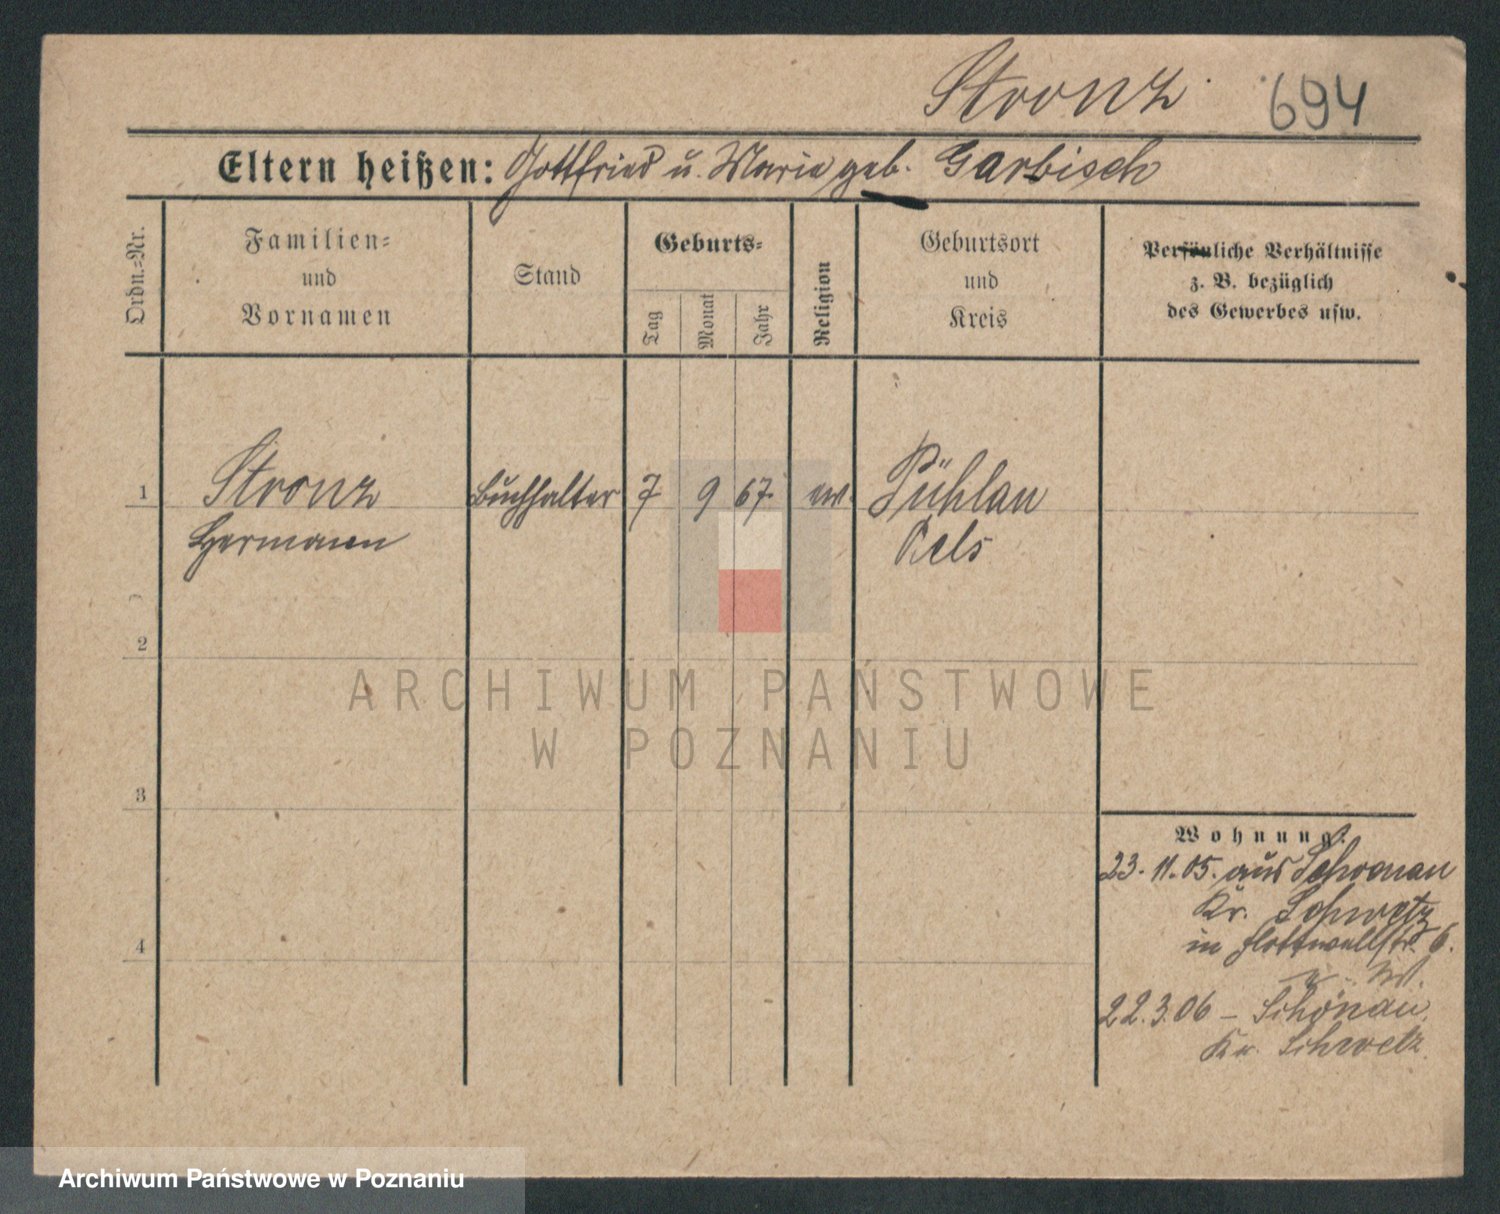 Stronz 694
Eltern heißen: Gottfried u. Maria geb. Garbisch
Ordn.-Nr.
Familien-
und
Vornamen
Stand
Geburts-
Tag
Monat
Jahr
Religion
Geburtsort
und
Kreis
Persönliche Verhältnisse
z. B. bezüglich
des Gewerbes usw.
1 Stronz Buchhalter 7 9 67. ev. Pühlau
Hermann Oels
2
ARCHIWUM PAŃSTWOWE
W POZNANIU
3
Wohnung.
23. 11. 05. aus Schönau
Kr. Schwetz
4
in Flottwellstr. 6.
22.3.06 – Schönau.
Kr. Schwetz.
Archiwum Państwowe w Poznaniu